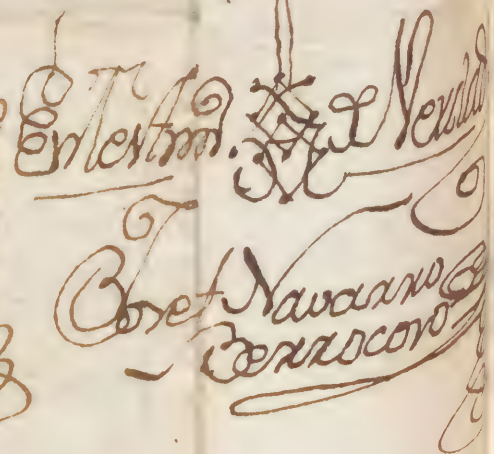 En testim.º de Verdad
Josef Navarro
Berrocoso